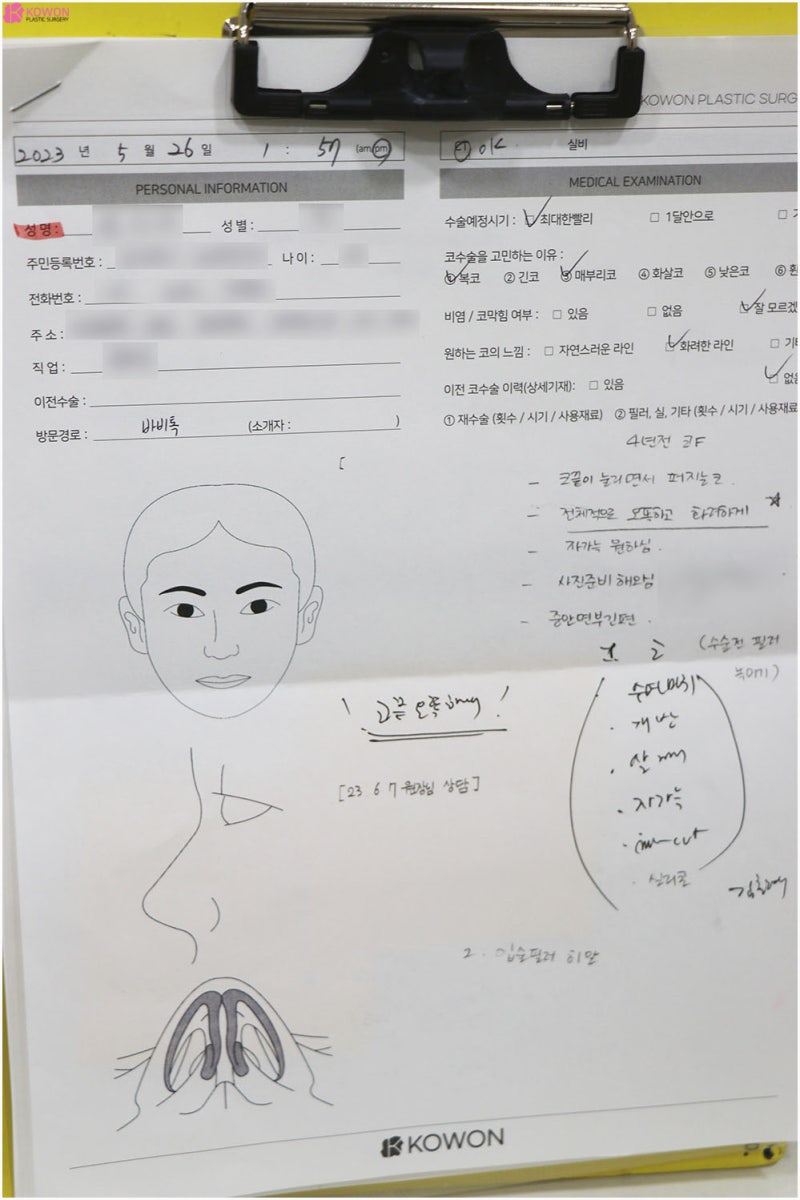 KOWON
PLASTIC SURGERY
KOWON PLASTIC SURG
2023 년 5 월 26 일 1 : 57 (am/pm)
OK 실비
PERSONAL INFORMATION
성명 :
성별 :
주민등록번호 :
나이 :
전화번호 :
주소 :
직업 :
이전수술 :
방문경로 : 바비톡 (소개자 : )
MEDICAL EXAMINATION
수술예정시기 : ☑ 최대한빨리 □ 1달안으로 □ 기
코수술을 고민하는 이유 :
① 복코 ② 긴코 ③ 매부리코 ④ 화살코 ⑤ 낮은코 ⑥ 휜
비염 / 코막힘 여부 : □ 있음 □ 없음 ☑ 잘 모르겠
원하는 코의 느낌 : □ 자연스러운 라인 ☑ 화려한 라인 □ 기타
이전 코수술 이력(상세기재) : □ 있음 ☑ 없음
① 재수술 (횟수 / 시기 / 사용재료) ② 필러, 실, 기타 (횟수 / 시기 / 사용재료
4년전 코F
[
- 코끝이 눌리면서 퍼지는 코.
- 전체적으로 오똑하고 화려하게
- 자가늑 원하심.
- 사진준비 해오심
- 중안면부긴편.
(수술전 필러
녹이기)
! 코끝 오똑하게 !
[23 6 7 원장님 상담]
· 자가늑
· 실리콘
2. 입술필러 하고
KOWON